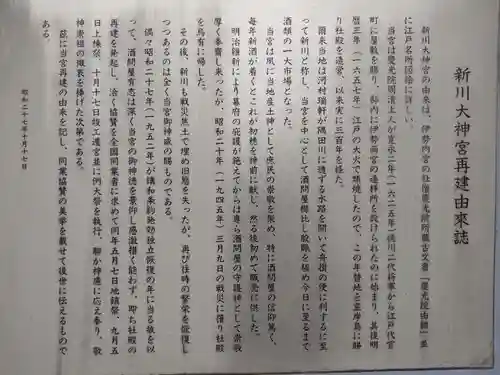 新川大神宮再建由來誌
新川大神宮の由来は、伊勢内宮の社僧慶光院所蔵古文書「慶光院由緒」並
に江戸名所図絵に詳しい。
当宮は慶光院周清上人が寛永二年(一六二五年)徳川二代将軍から江戸代官
町に屋敷を賜り、邸内に伊勢両宮の遥拝所を設けられたのに始まり、其後明
暦三年(一六五七年)江戸の大火で類焼したので、この年替地を霊岸島に賜
り社殿を造営、以来実に三百年を経た。
爾来当地は河村瑞軒が隅田川に通ずる水路を開いて舟揖の便に利するに至
って新川と称し、当宮を中心として酒問屋櫛比し殷賑を極め今日に至るまで
酒類の一大市場となった。
当宮は夙に当地産土神として庶民の崇敬を聚め、特に酒問屋の信仰篤く、
毎年新酒が着くとこれが初穂を神前に献じ、然る後初めて販売に供した。
明治維新により幕府の庇護が絶えてからは専ら酒問屋の守護神として崇敬
厚く奉齋し来ったが、昭和二十年(一九四五年)三月九日の戦災に罹り社殿
を烏有に帰した。
その後、新川も戦災焦土で埋め旧態を失ったが、再び往時の繁栄を恢復し
つつあるのは全く当宮御神威の賜ものである。
偶々昭和二十七年(一九五二年)が講和条約発効独立恢復の年に当る故を以
って、酒問屋有志は深く当宮の御神徳を景仰し感激措く能わず、即ち社殿の
再建を発起し、洽く協賛を全国同業者に求めて同年五月七日地鎮祭、九月五
日上棟祭、十月十七日竣工遷宮並に例大祭を執行、聊か神慮に応え奉り、敬
神崇祖の微衷を捧げた次第である。
茲に当宮再建の由来を記し、同業協賛の美挙を載せて後世に伝えるもので
ある。
昭和二十七年十月十七日